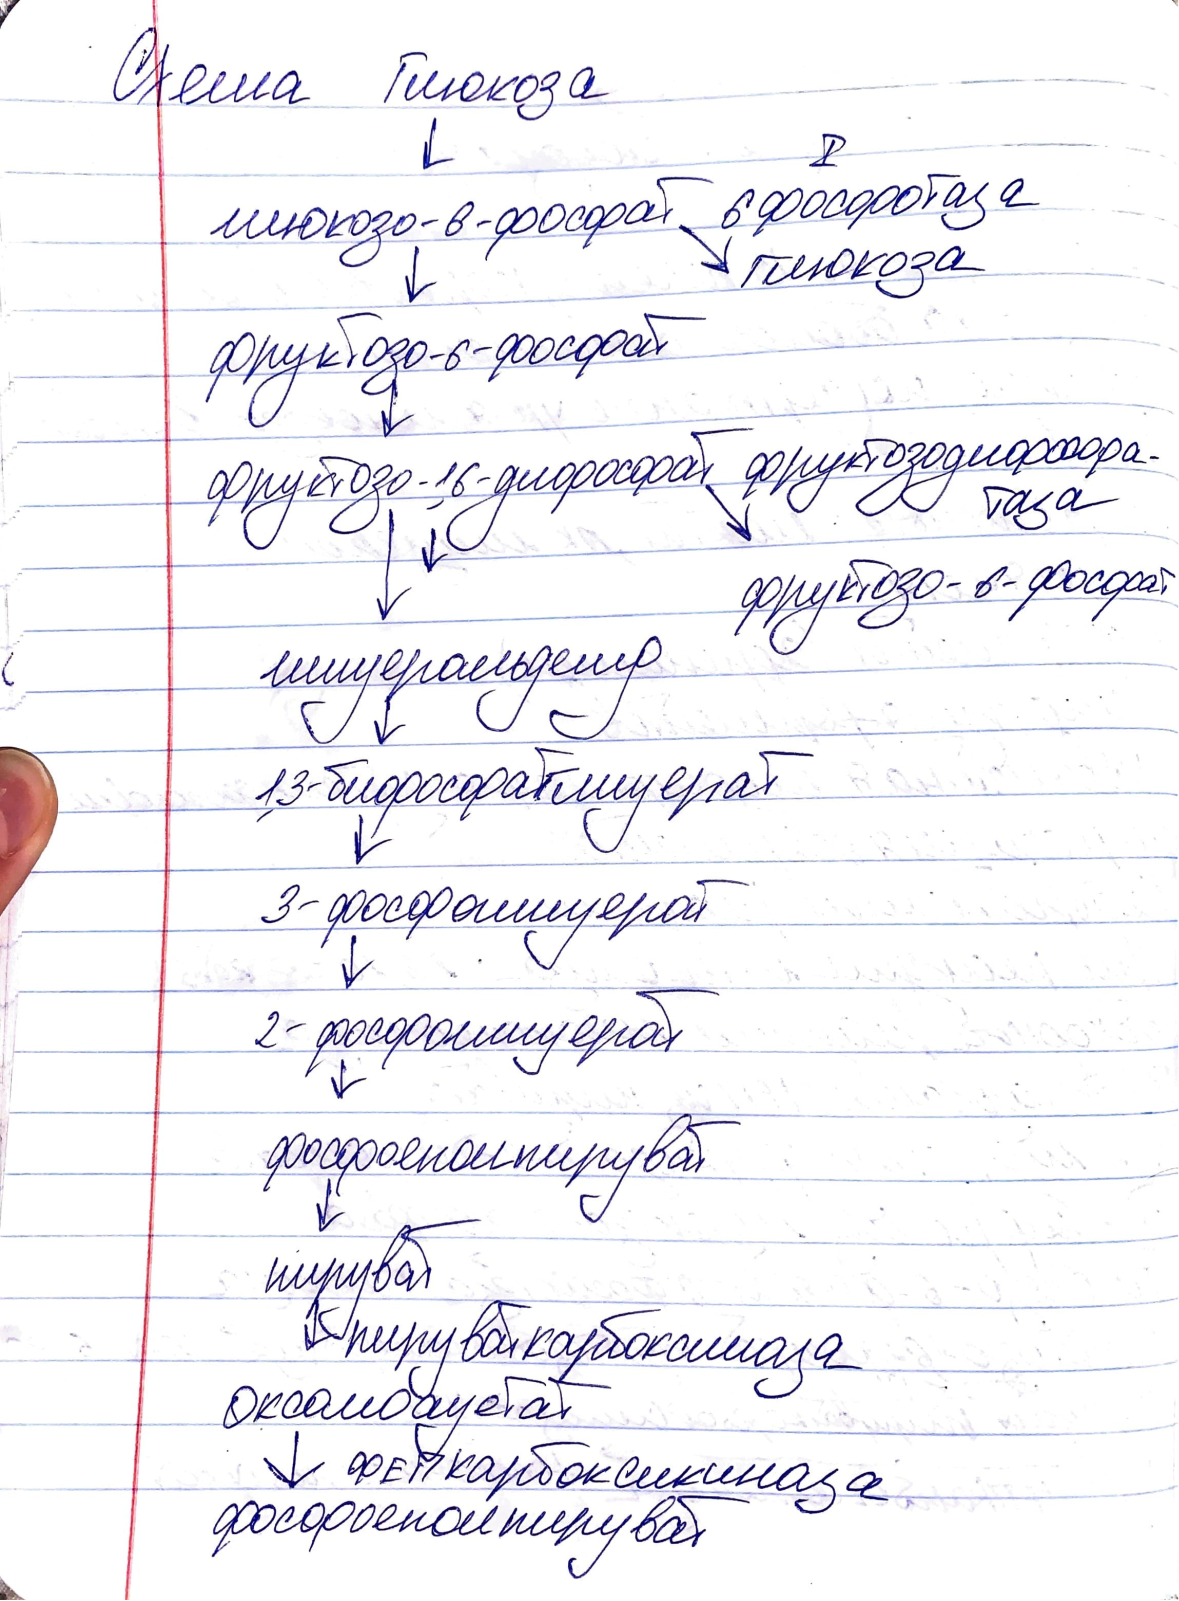 Схема Глюкоза
I
глюкозо-6-фосфат 6фосфотаза
глюкоза
фруктозо-6-фосфат
фруктозо-1,6-дифосфат фруктозодифосфа-
таза
фруктозо-6-фосфат
глицеральдегид
1,3-бифосфатглицерат
3-фосфоглицерат
2-фосфоглицерат
фосфоенолпируват
пируват
пируваткарбоксилаза
оксалоацетат
ФЕПкарбоксикиназа
фосфоенолпируват